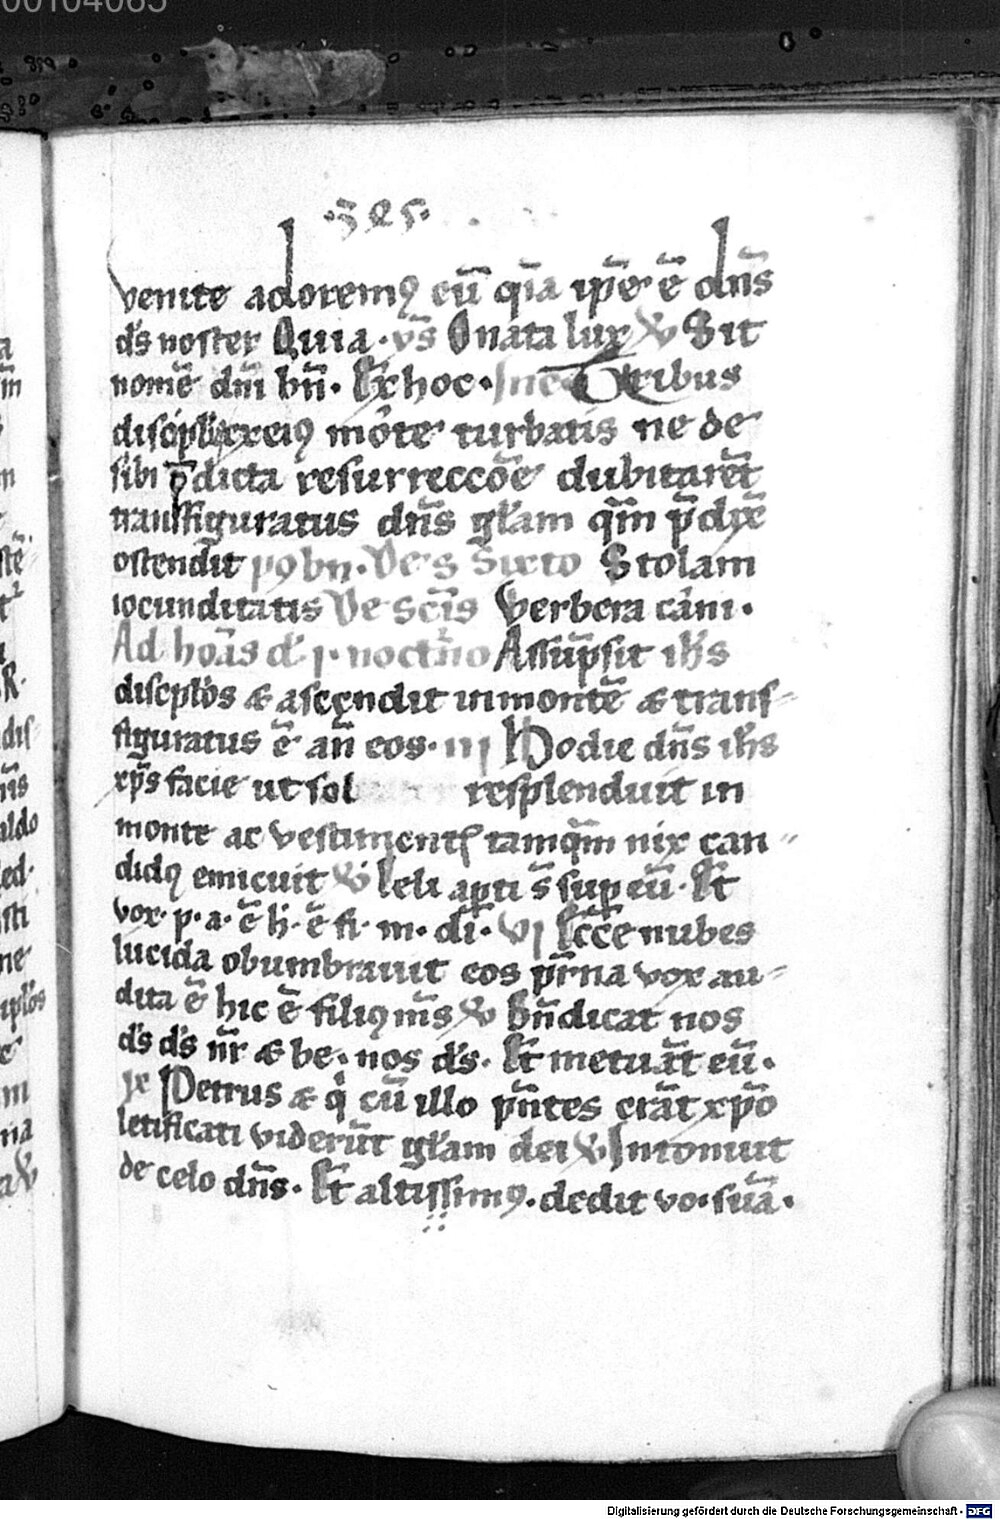 00104065
·325·
venite adoremꝯ eū q̄ia ip̄e ē dn̄s
ds̄ noster Quia · vs̄ O nata lux ℣ Sit
nomē dn̄i bn̄. Ex hoc · Tribus
mōte turbatis ne de
sibi p̄dicta resurreccōe dubitarēt
transfiguratus dn̄s gl̄am qm̄ p̄dixē
ostendit De S Sixto Stolam
iocunditatis De sc̄is Verbera carni ·
Ad hoās d' j · noctn̄o Assūpsit ih̄s
discpl̄os & ascendit in montē & trans-
figuratus ē an̄ eos · iij Hodie dn̄s ih̄s
xp̄s facie ut sol resplenduit in
monte ac vestimentꝭ tamqm̄ nix can-
didꝯ emicuit ℣ Celi ap̄ti s̄ sup eū · Et
vox · p · a · ē h̄ · ē fi · m · di · vj Ecce nubes
lucida obumbravit eos pr̄na vox au-
dita ē hic ē filiꝯ m̄s ℣ Bn̄dicat nos
ds̄ ds̄ nr̄ & be · nos ds̄ · Et metuāt eū ·
ix Petrus & q̄ cū illo pn̄tes erāt xp̄o
letificati viderūt gl̄am dei ℣ Intonuit
de celo dn̄s · Et altissimꝯ · dedit vo · suā ·
Digitalisierung gefördert durch die Deutsche Forschungsgemeinschaft - DFG